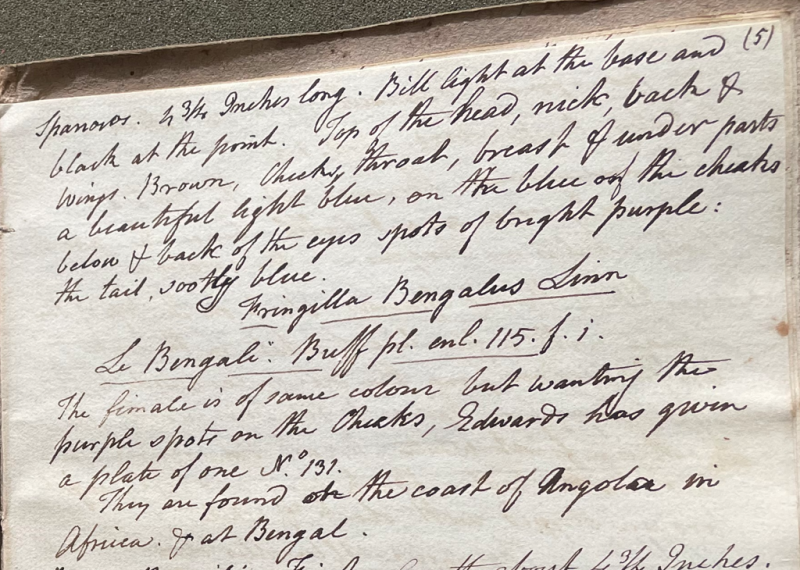 (5)
Sparrows. 4 3/4 Inches long. Bill light at the base and
black at the point. Top of the head, nick, back &
wings. Brown, Cheeks, throat, breast & under parts
a beautiful light blue, on the blue of the cheaks
below & back of the eyes spots of bright purple:
the tail, sootty blue.
Fringilla Bengalus Linn
Le Bengali. Buff pl. enl. 115. f. i.
The fimale is of same colour but wanting the
purple spots on the Cheaks, Edwards has givin
a plate of one No. 131.
They are found the coast of Angola in
Africa. & at Bengal.
about 4 3/4 Inches.